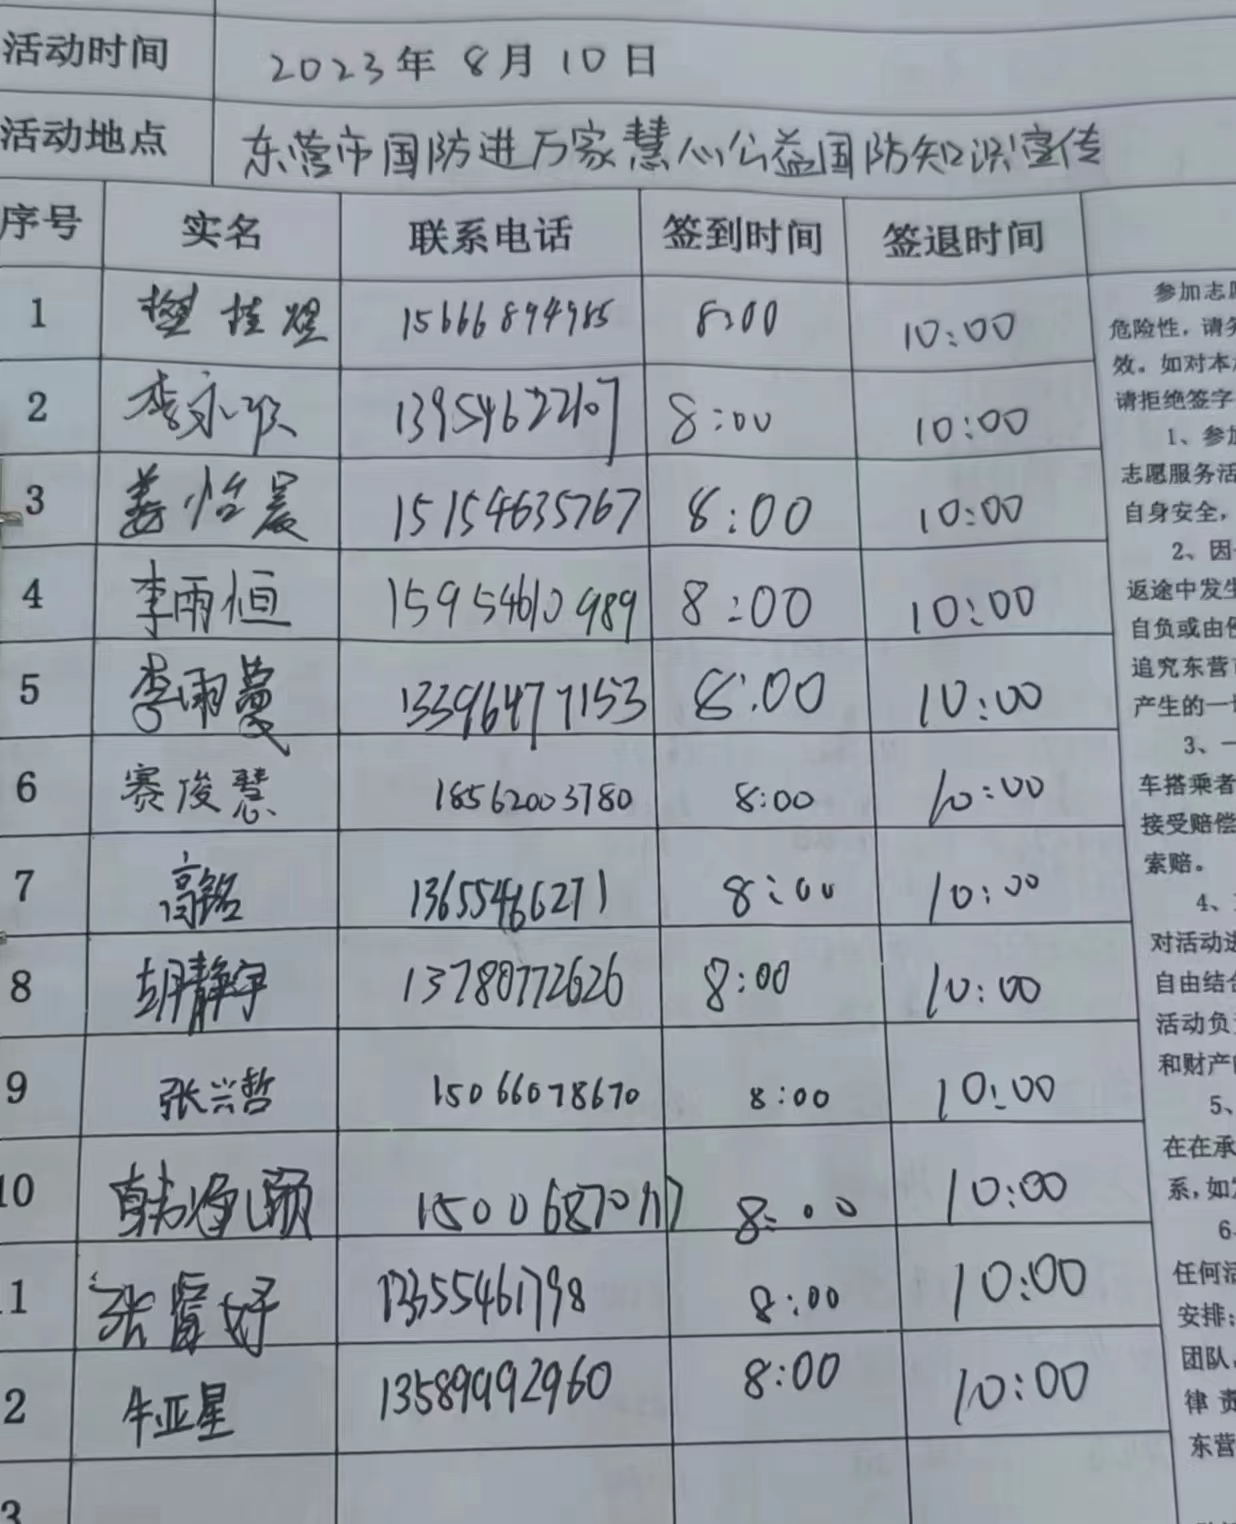 活动时间 2023年8月10日
活动地点 东营市国防进万家慧心公益国防知识宣传
序号 实名 联系电话 签到时间 签退时间
1 15666894985 8:00 10:00
2 李永 13954622107 8:00 10:00
3 姜怡晨 15154635767 8:00 10:00
4 李雨恒 15954610989 8:00 10:00
5 李雨蔓 13396477153 8:00 10:00
6 赛俊慧 18562003780 8:00 10:00
7 高铭 13655466271 8:00 10:00
8 胡静宇 13780772626 8:00 10:00
9 张兴哲 15066078670 8:00 10:00
10 韩 颐 8:00 10:00
1 张 好 13355461798 8:00 10:00
2 牛亚星 13589992960 8:00 10:00
3
参加志愿
危险性，请务
效。如对本
请拒绝签字
1、参加
志愿服务活
自身安全，
2、因
返途中发生
自负或由
追究东营
产生的一切
3、一
车搭乘者
接受赔偿
索赔。
4、
对活动进
自由结合
活动负责
和财产
5、
在在承
系，如
6、
任何活
安排；
团队
律责
东营